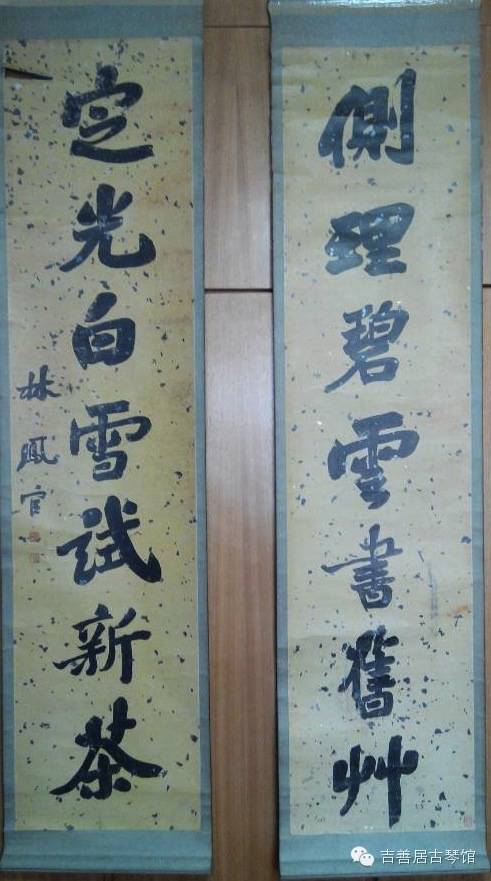 側理碧雲書舊艸
定光白雪試新茶
林鳳官
吉善居古琴馆